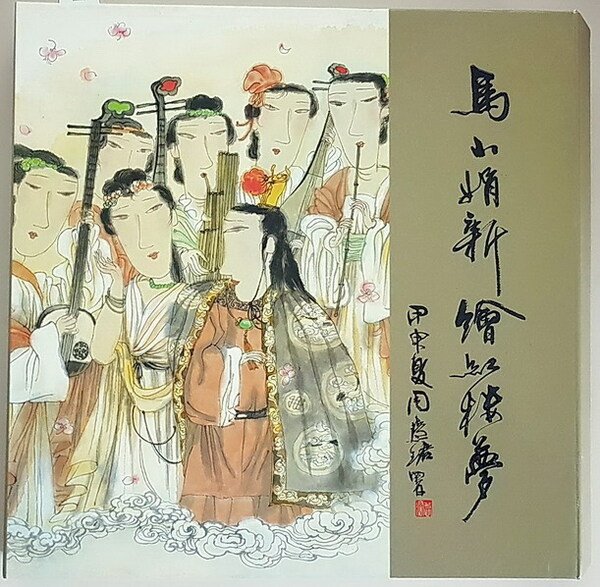 馬小娟新繪紅樓夢
甲申夏周惠珺署